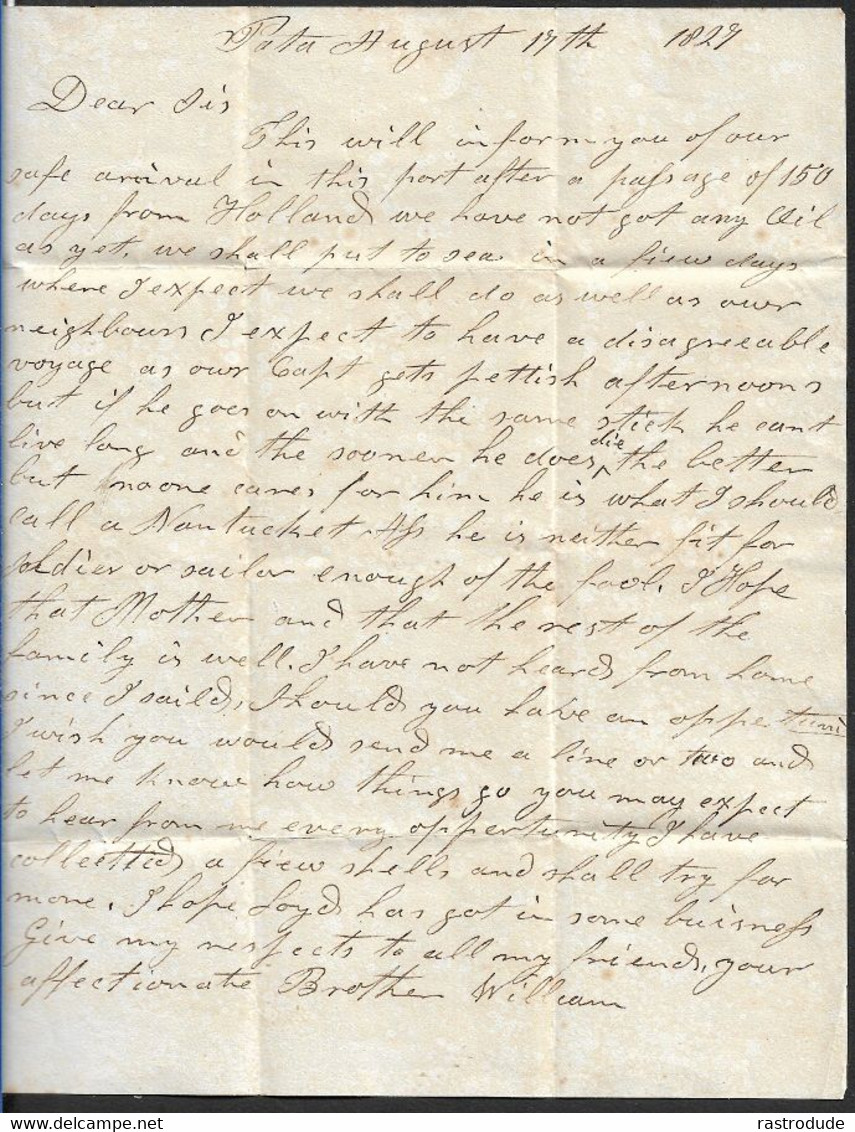 Pata August 17th 1827
Dear Sis
This will inform you of our
safe arival in this port after a passage of 150
days from Holland we have not got any Oil
as yet. we shall put to sea in a fiew days
where I expect we shall do as well as owr
neighbours I expect to have a disagreeable
voyage as owr Capt gets pettish afternoons
but if he goes on with the same stick he cant
live long and the sooner he does die the better
but noone cares for him he is what I should
call a Nantucket Ass he is neither fit for
soldier or sailor enough of the fool. I Hope
that Mother and that the rest of the
family is well. I have not heard from home
since I saild, Should you have an oppertuni
I wish you would send me a line or two and
let me know how things go you may expect
to hear from me every oppertunity I have
collected a fiew shells and shall try for
more. I hope Loyd has got in some buisness
Give my respects to all my friends, your
affectionate Brother William
rastrodude